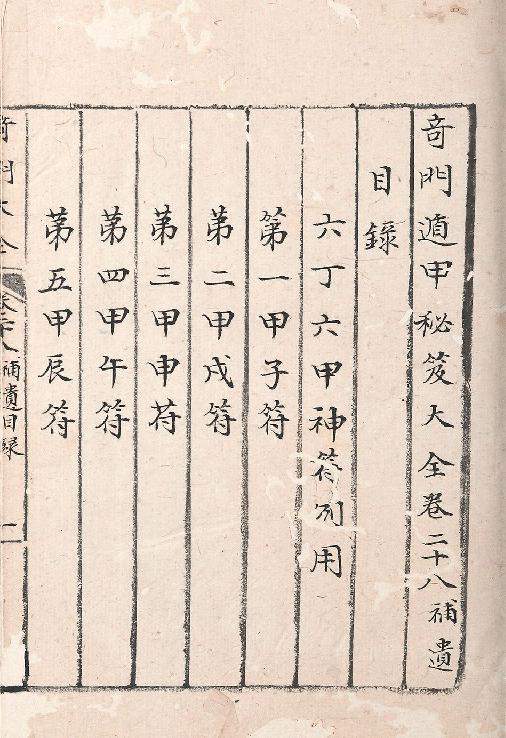 奇門遁甲秘笈大全卷二十八補遺
目錄
六丁六甲神符列用
第一甲子符
第二甲戌符
第三甲申符
第四甲午符
第五甲辰符
奇門大全 卷廿八補遺目録 一